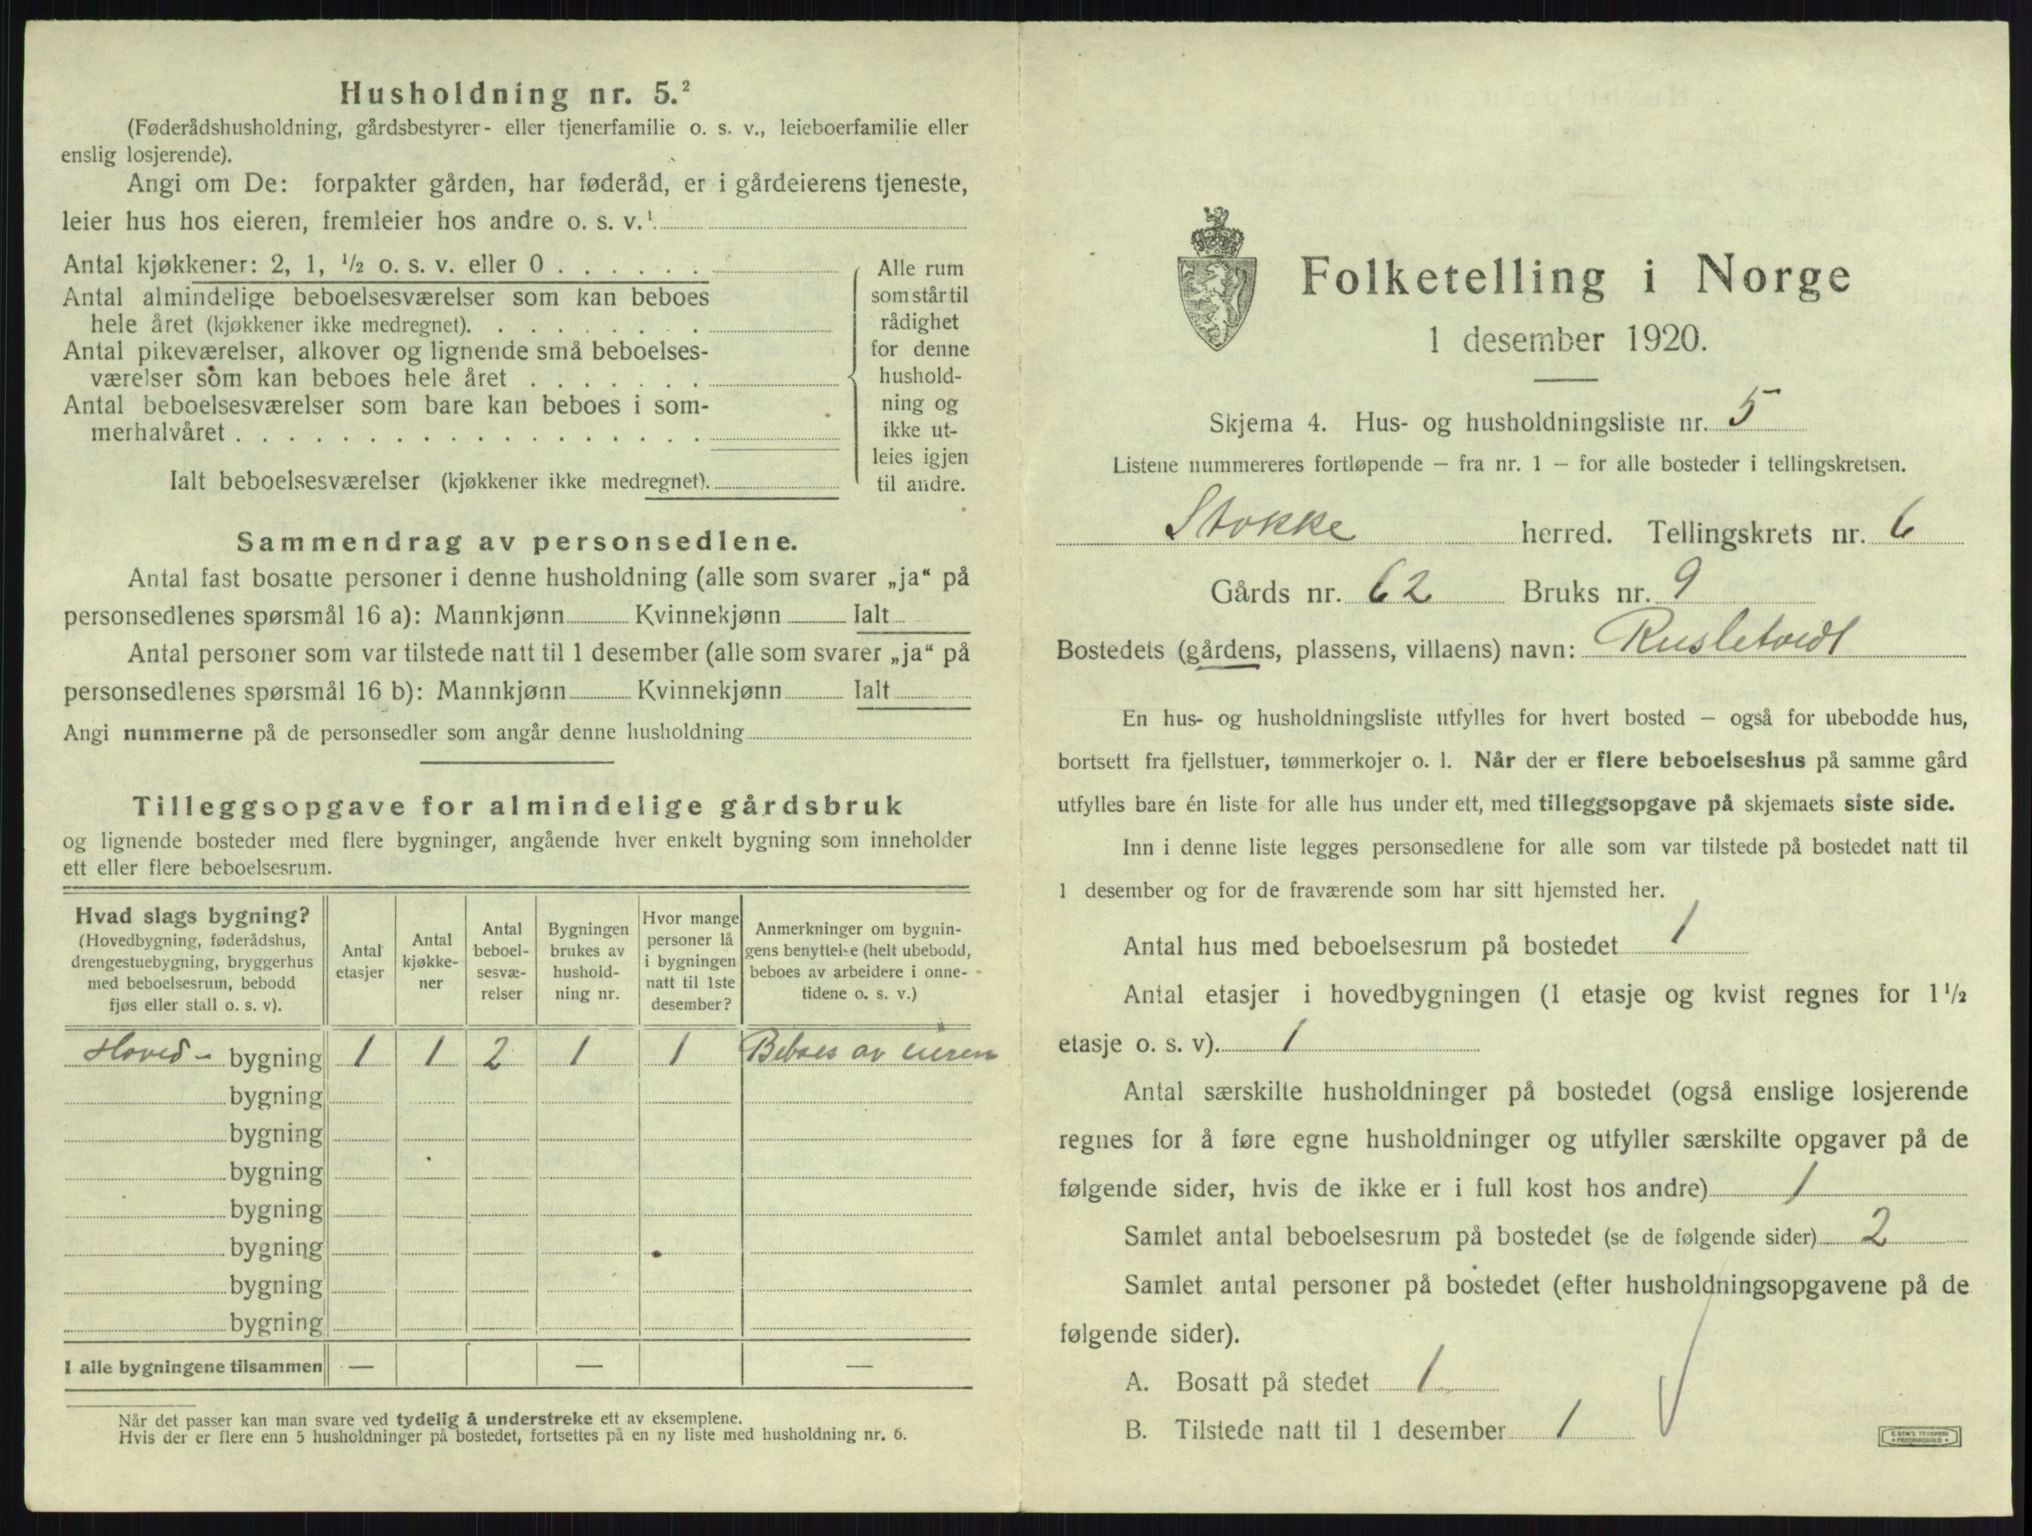 Husholdning nr. 5.²
(Føderådshusholdning, gårdsbestyrer- eller tjenerfamilie o. s. v., leieboerfamilie eller
enslig losjerende).
Angi om De: forpakter gården, har føderåd, er i gårdeierens tjeneste,
leier hus hos eieren, fremleier hos andre o. s. v.¹
Antal kjøkkener: 2, 1, ½ o. s. v. eller 0 . . . . . .
Antal almindelige beboelsesværelser som kan beboes
hele året (kjøkkener ikke medregnet). . . . . . . . .
Antal pikeværelser, alkover og lignende små beboelses-
værelser som kan beboes hele året . . . . . . .
Antal beboelsesværelser som bare kan beboes i som-
merhalvåret . . . . . . . . . . . . . . . . . .
Ialt beboelsesværelser (kjøkkener ikke medregnet).
Alle rum
som står til
rådighet
for denne
hushold-
ning og
ikke ut-
leies igjen
til andre.
Sammendrag av personsedlene.
Antal fast bosatte personer i denne husholdning (alle som svarer „ja“ på
personsedlenes spørsmål 16 a): Mannkjønn Kvinnekjønn Ialt
Antal personer som var tilstede natt til 1 desember (alle som svarer „ja“ på
personsedlenes spørsmål 16 b): Mannkjønn Kvinnekjønn Ialt
Angi nummerne på de personsedler som angår denne husholdning
Tilleggsopgave for almindelige gårdsbruk
og lignende bosteder med flere bygninger, angående hver enkelt bygning som inneholder
ett eller flere beboelsesrum.
Hvad slags bygning?
(Hovedbygning, føderådshus,
drengestuebygning, bryggerhus
med beboelsesrum, bebodd
fjøs eller stall o. s. v).
Antal
etasjer
Antal
kjøkke-
ner
Antal
beboel-
sesvæ-
relser
Bygningen
brukes av
hushold-
ning nr.
Hvor mange
personer lå
i bygningen
natt til 1ste
desember?
Anmerkninger om bygnin-
gens benyttelse (helt ubebodd,
beboes av arbeidere i onne-
tidene o. s. v.)
Hoved- bygning 1 1 2 1 1 Beboes av eieren
bygning
bygning
bygning
bygning
bygning
bygning
bygning
I alle bygningene tilsammen — — —
Når det passer kan man svare ved tydelig å understreke ett av eksemplene.
Hvis der er flere enn 5 husholdninger på bostedet, fortsettes på en ny liste med husholdning nr. 6.
Folketelling i Norge
1 desember 1920.
Skjema 4. Hus- og husholdningsliste nr. 5
Listene nummereres fortløpende – fra nr. 1 – for alle bosteder i tellingskretsen.
Stokke herred. Tellingskrets nr. 6
Gårds nr. 62 Bruks nr. 9
Bostedets (gårdens, plassens, villaens) navn: Rusletvedt
En hus- og husholdningsliste utfylles for hvert bosted – også for ubebodde hus,
bortsett fra fjellstuer, tømmerkojer o. l. Når der er flere beboelseshus på samme gård
utfylles bare én liste for alle hus under ett, med tilleggsopgave på skjemaets siste side.
Inn i denne liste legges personsedlene for alle som var tilstede på bostedet natt til
1 desember og for de fraværende som har sitt hjemsted her.
Antal hus med beboelsesrum på bostedet 1
Antal etasjer i hovedbygningen (1 etasje og kvist regnes for 1½
etasje o. s. v). 1
Antal særskilte husholdninger på bostedet (også enslige losjerende
regnes for å føre egne husholdninger og utfyller særskilte opgaver på de
følgende sider, hvis de ikke er i full kost hos andre) 1
Samlet antal beboelsesrum på bostedet (se de følgende sider) 2
Samlet antal personer på bostedet (efter husholdningsopgavene på de
følgende sider).
A. Bosatt på stedet 1
B. Tilstede natt til 1 desember 1